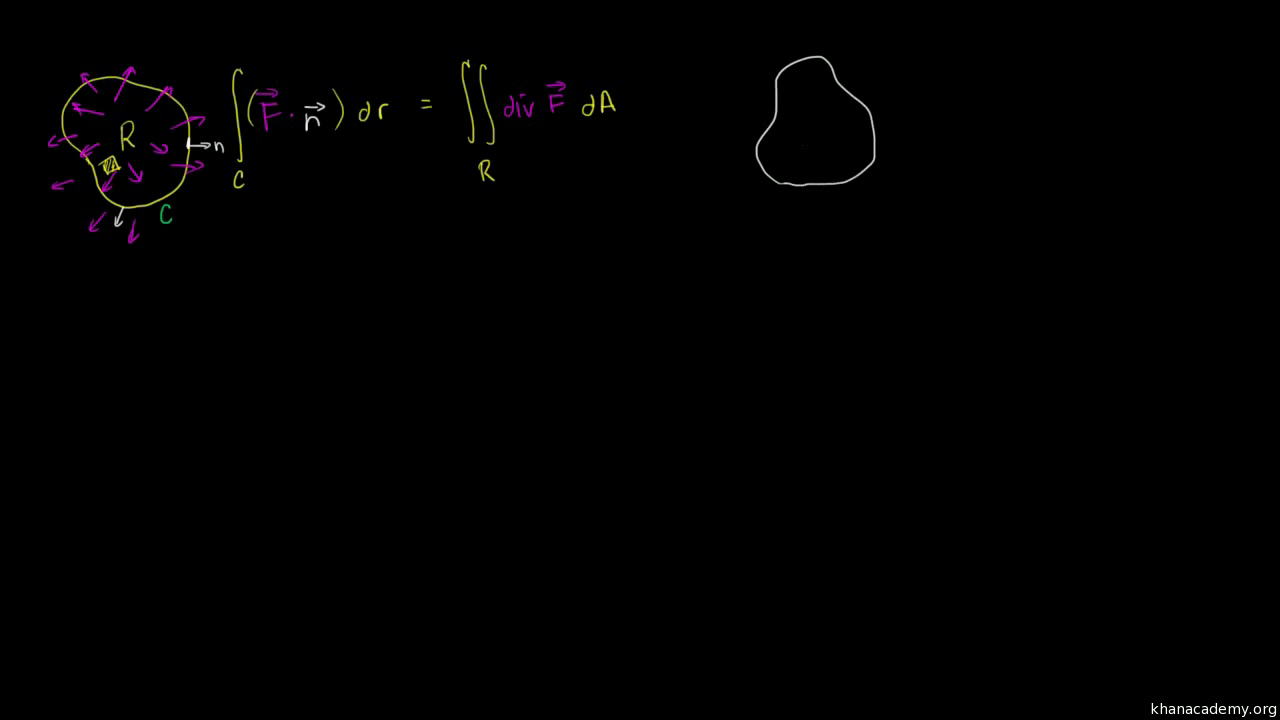 R
n
C
∫_C (F⃗ · n⃗) dr = ∬_R div F⃗ dA
khanacademy.org